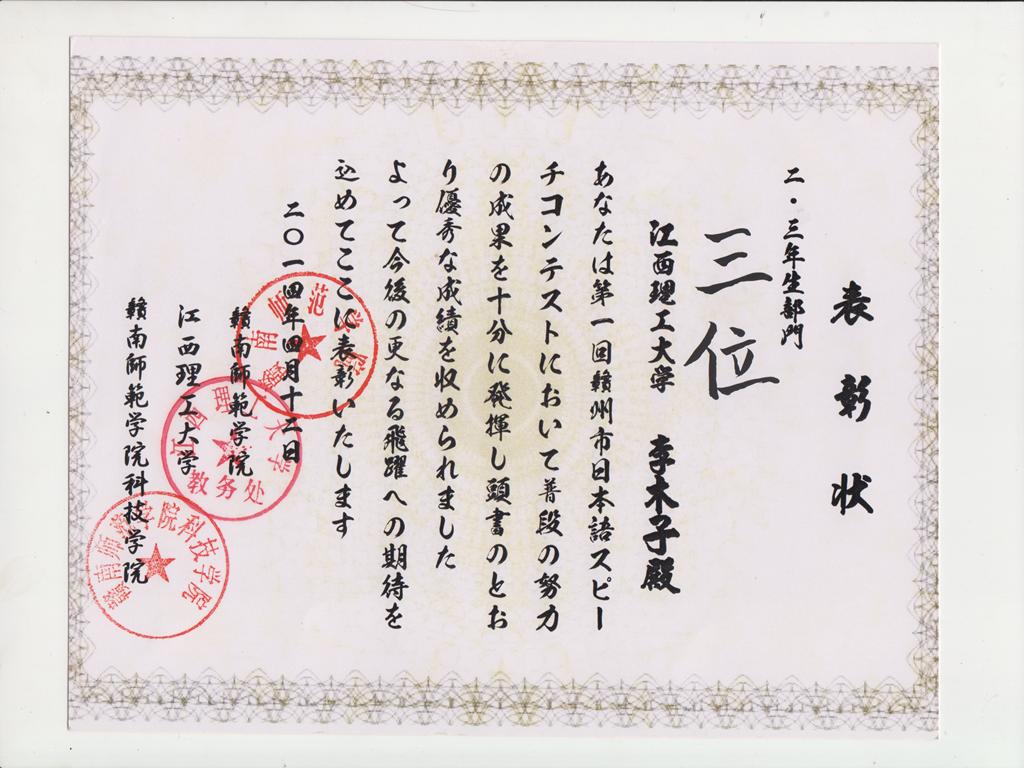 表彰状
二・三年生部門
三位
江西理工大学 李木子殿
あなたは第一回贛州市日本語スピー
チコンテストにおいて普段の努力
の成果を十分に発揮し頭書のとお
り優秀な成績を収められました
よって今後の更なる飛躍への期待を
込めてここに表彰いたします
二〇一四年四月十二日
贛南師範学院
江西理工大学
贛南師範学院科技学院
赣南师范学院
江西理工大学
教务处
赣南师范学院科技学院